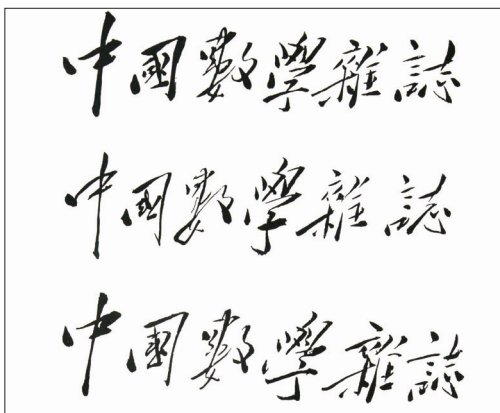 中國數學雜誌
中國數學雜誌
中國數學雜誌